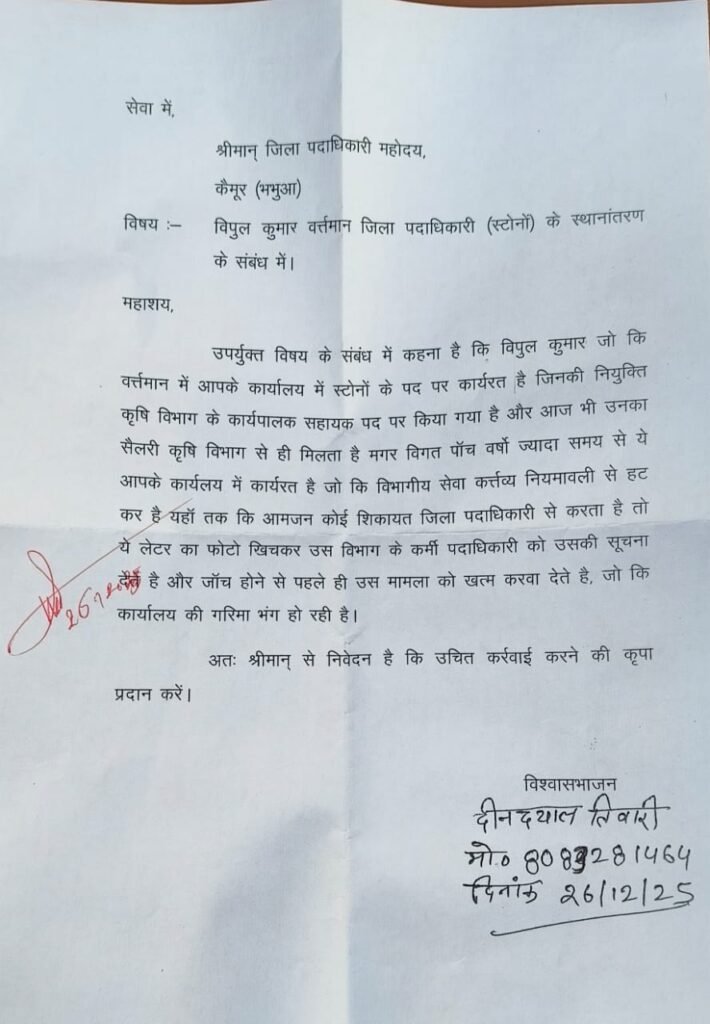 सेवा में,
श्रीमान् जिला पदाधिकारी महोदय,
कैमूर (भभुआ)
विषय :– विपुल कुमार वर्त्तमान जिला पदाधिकारी (स्टोनों) के स्थानांतरण
के संबंध में।
महाशय,
उपर्युक्त विषय के संबंध में कहना है कि विपुल कुमार जो कि
वर्त्तमान में आपके कार्यालय में स्टोनों के पद पर कार्यरत है जिनकी नियुक्ति
कृषि विभाग के कार्यपालक सहायक पद पर किया गया है और आज भी उनका
सैलरी कृषि विभाग से ही मिलता है मगर विगत पॉच वर्षो ज्यादा समय से ये
आपके कार्यलय में कार्यरत है जो कि विभागीय सेवा कर्त्तव्य नियमावली से हट
कर है यहॉ तक कि आमजन कोई शिकायत जिला पदाधिकारी से करता है तो
ये लेटर का फोटो खिचकर उस विभाग के कर्मी पदाधिकारी को उसकी सूचना
देते है और जॉच होने से पहले ही उस मामला को खत्म करवा देते है, जो कि
कार्यालय की गरिमा भंग हो रही है।
अतः श्रीमान् से निवेदन है कि उचित कर्रवाई करने की कृपा
प्रदान करें।
विश्वासभाजन
दीनदयाल तिवारी
मो० 8083281464
दिनांक 26/12/25